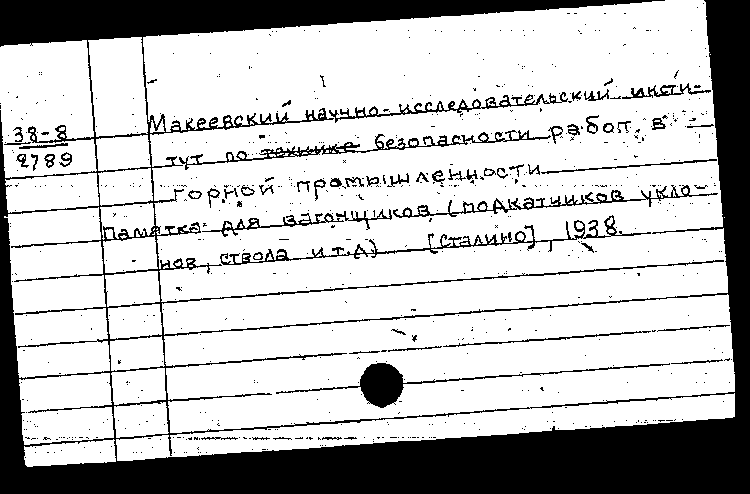 38-8
2789
Макеевский научно-исследовательский инсти-
тут по технике безопасности работ в
горной промышленности
Памятка для вагонщиков (подкатчиков укло-
нов, ствола и т.д) [Сталино], 1938.